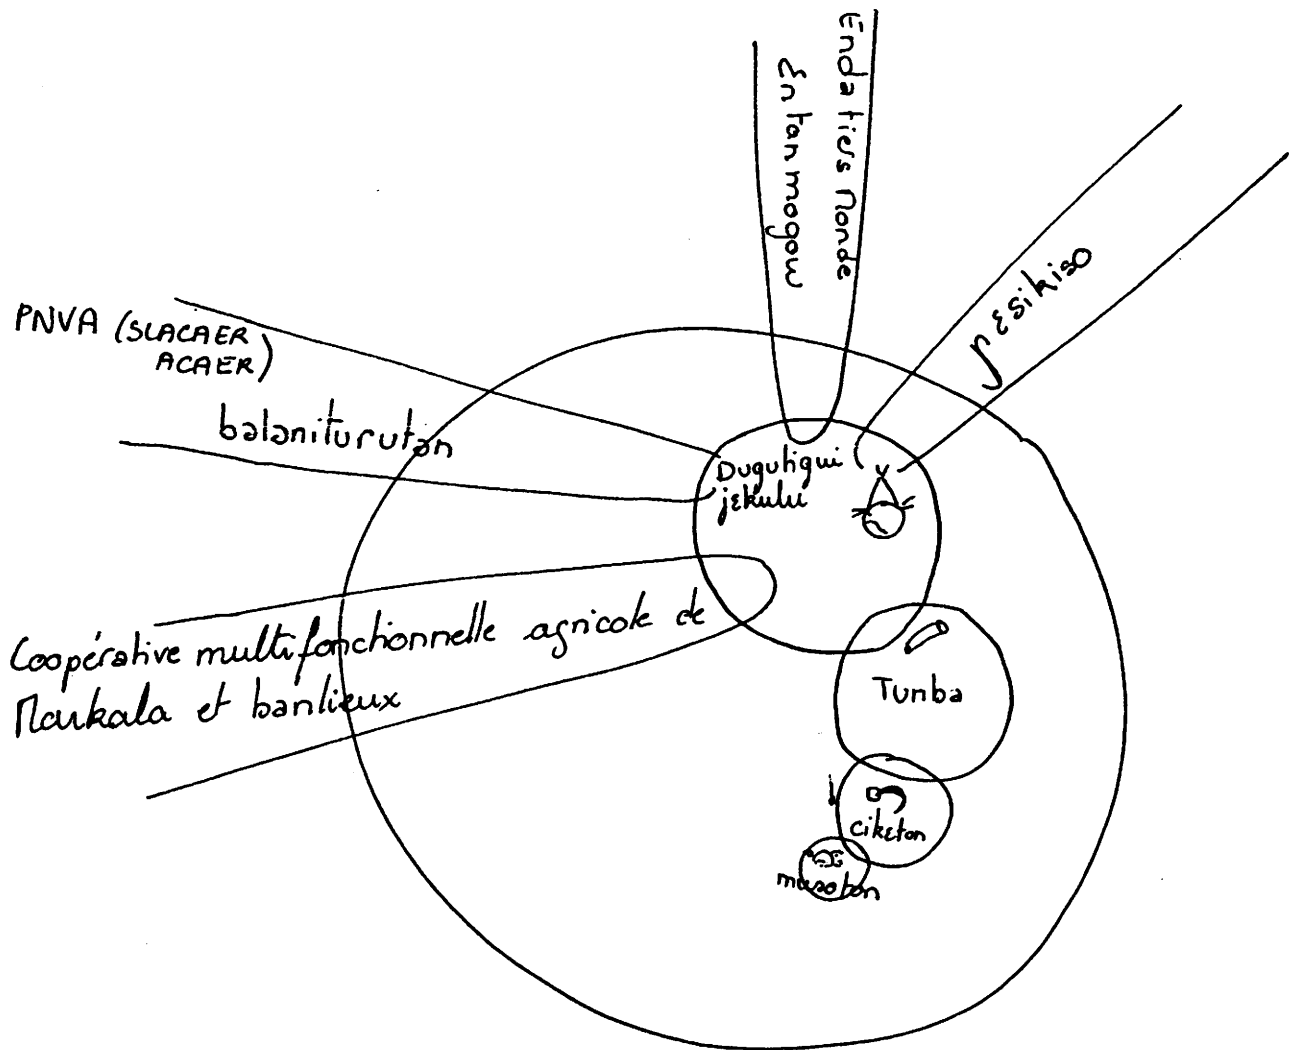 Enda tiers Monde
Entanmogow
ɲɛsikiso
PNVA (SLACAER
ACAER)
balaniturutan
Dugutigui
jɛkulu
Coopérative multifonctionnelle agricole de
Markala et banlieux
Tunba
cikɛton
musoton